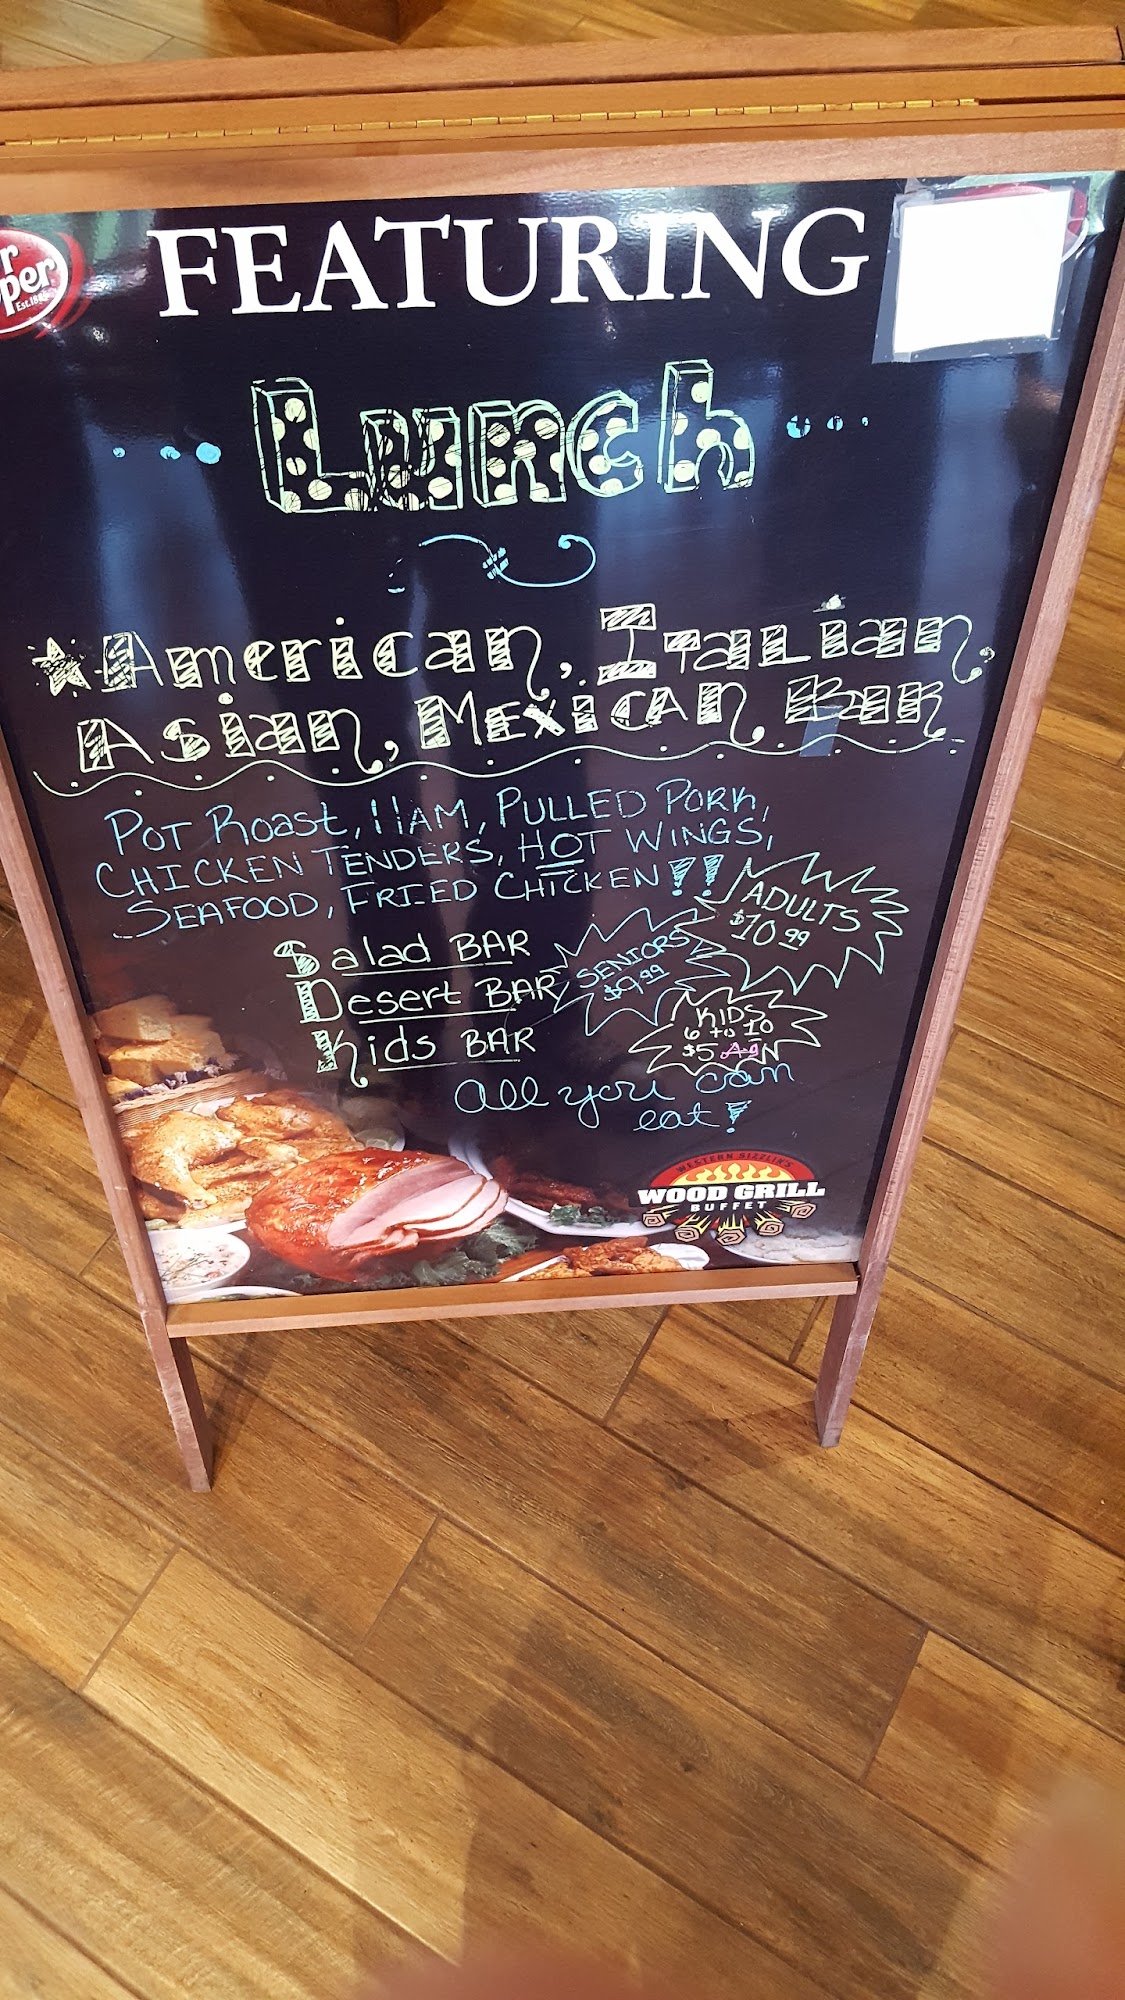 FEATURING
Est. 1885
Lunch
American, Italian,
Asian, Mexican Bar
Pot Roast, HAM, PULLED PORK,
CHICKEN TENDERS, HOT WINGS,
SEAFOOD, FRIED CHICKEN!!
ADULTS
$10 99
Salad BAR
SENIORS
$9.99
Desert BAR
KIDS
6 to 10
$5
Kids BAR
All you can
eat!
WESTERN SIZZLIN'S
WOOD GRILL
BUFFET